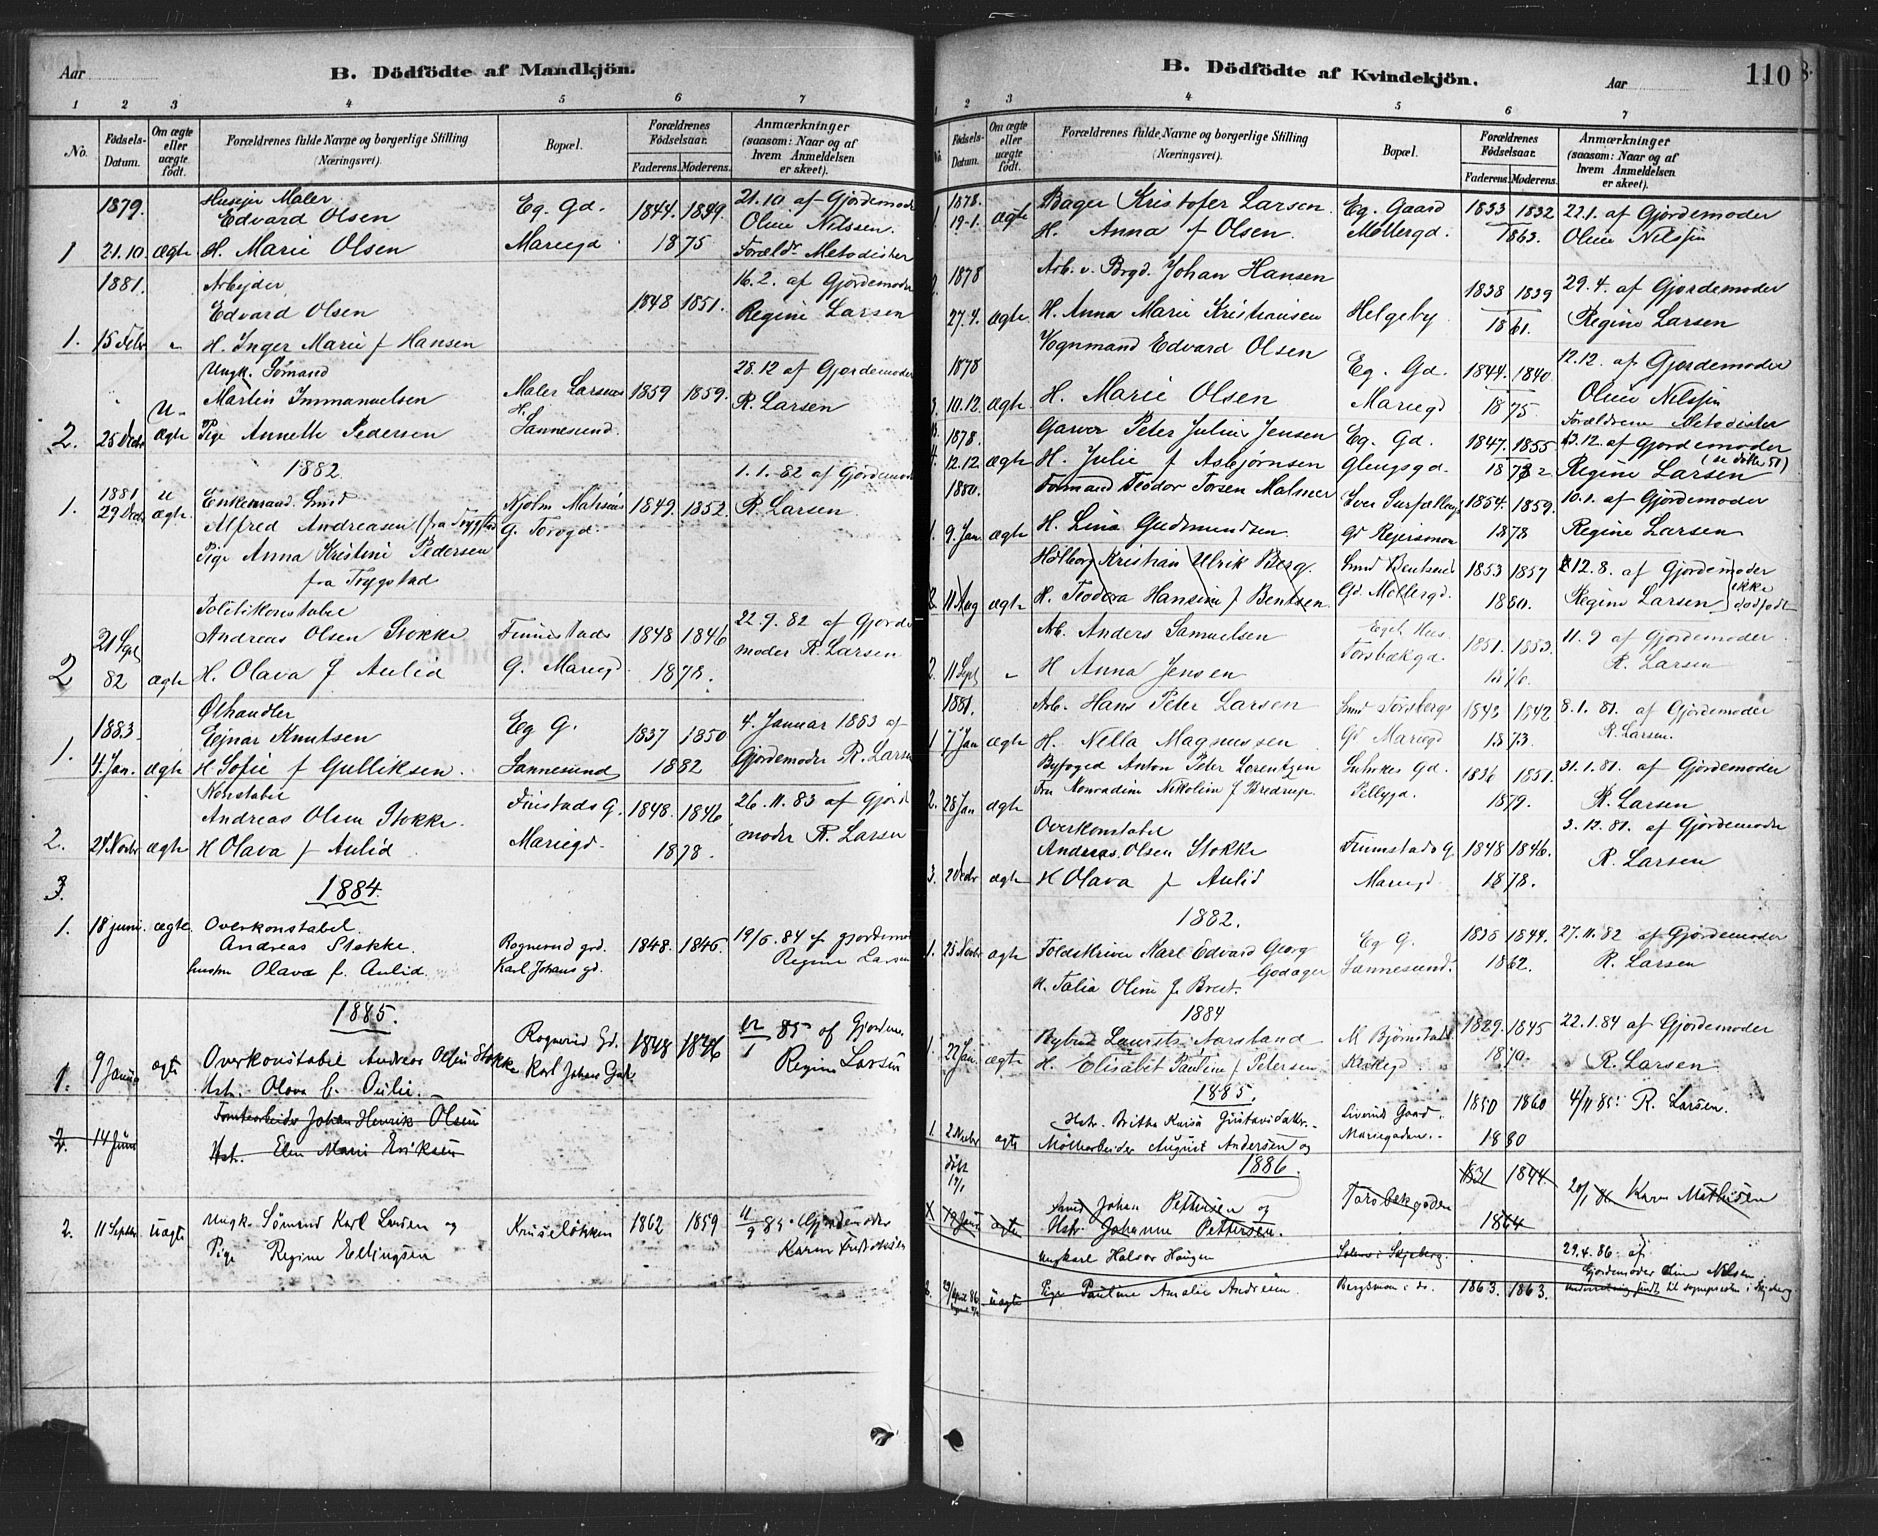 Aar
B. Dödfödte af Mandkjön.
1 2 3 4 5 6 7
No.
Födsels-Datum.
Om ægte eller uægte födt.
Forældrenes fulde Navne og borgerlige Stilling (Næringsvei).
Bopæl.
Forældrenes Födselsaar.
Faderens. Moderens.
Anmærkninger (saasom: Naar og af hvem Anmeldelsen er skeet).
1879. Maler
Edvard Olsen Eg. Gd. 1844. 1849. 21.10 af Gjordemoder
1 21.10. ægte H. Marie Olsen Mariegd. 1875 Oline Nilssen.
Forældr. Metodister
1881. Arbejder 16.2. af Gjordemoder
Edvard Olsen 1848 1851. Regine Larsen
1. 15 Febr " H. Inger Marie f Hansen
Ungk. Sømand 28.12 af Gjordemoder
Martin Immanuelsen Maler Larsens 1859 1859. R. Larsen
2. 25 Decbr U-ægte Pige Annette Pedersen H. Sannesund.
1882. 1.1.82 af Gjordemoder
1. 1881 29 Decbr uægte Enkemand Smed 1849. 1852. R. Larsen
Alfred Andreasen (fra Trygstad G. Torvgd.
Pige Anna Kristine Pedersen
fra Trygstad
Politikonstabel 22.9.82 af Gjorde
21 Sept Andreas Olsen Stokke Finnestads 1848 1846 moder R. Larsen
2 82 ægte H. Olava f Aulid G. Mariegd. 1878.
1883. Ølhandler 4. Januar 1883 af
Ejnar Knutsen Eg G. 1837 1850 Gjordemoder R. Larsen
1. 4 Jan. ægte H Sofie f Gulliksen. Sannesund 1882
Konstabel
Andreas Olsen Stokke. G. 1848. 1846. 26.11.83 af Gjord
2. 24 Novbr ægte H Olava f Aulid Mariegd. 1878. moder R. Larsen
3. 1884.
1. 18 juni. ægte. Overkonstabel.
Andreas Stokke. Rognerud grd. 1848. 1846. 19/6. 84 af gjordemoder
hustru Olava f. Aulid. Karl Johans gd. Regine Larsen
1885.
1. 9 Januar ægte Overkonstabel Andreas Olsen Stokke Rognerud Gd. 1848 1846 12/1 85 af Gjordem.
Hstr. Olava f. Karl Johans Gade Regine Larsen
2. 14 Juni Johan Henrik Olsen
Hstr. Elen Marie Eriksen
2. 11 Septbr uægte Ungk. Sømand Karl Larsen og Kruseløkken 1862 1859 11/9 85. Gjordemoder
Pige Regine Ellingsen Karen
B. Dödfödte af Kvindekjön. Aar 110
1 2 3 4 5 6 7
No.
Födsels-Datum.
Om ægte eller uægte födt.
Forældrenes fulde Navne og borgerlige Stilling (Næringsvei).
Bopæl.
Forældrenes Födselsaar.
Faderens. Moderens.
Anmærkninger (saasom: Naar og af hvem Anmeldelsen er skeet).
1878. Bager Kristofer Larsen. Eg. Gaard 1833 1832 22.1. af Gjordemoder
1. 19-1. ægte H. Anna f Olsen. Møllergd. 1863. Oline Nilssen
1878 Arb. v. Brgd. Johan Hansen 1838 1839 29.4. af Gjordemoder
2. 27.4. ægte H. Anna Marie Kristiansen Helgeby 1861. Regine Larsen
1878 Vognmand Edvard Olsen Eg. Gd. 1844. 1840. 12.12. af Gjordemoder
3. 10.12. ægte H. Marie Olsen Mariegd 1875 Oline Nilssen
Forældrene Metodister
1878. Garver Peter Julius Jensen Eg. Gd. 1847. 1855 13.12. af Gjordemoder
4. 12.12 ægte H. Julie f Asbjørnsen Glengsgd. Regine Larsen
1880. Formand Teodor 1854. 1859. 10.1. af Gjordemoder
1. 9 Jan ægte H. Lina Gudmundsen 1878 Regine Larsen
Kristian Ulrik Berg. Smed Bentsens 1853 1857 12.8. af Gjordemoder ikke
2. 11 Aug ægte H. Teodora Hansine f Bentsen Gd. Møllergd. 1880. Regine Larsen dødfødt
Arb. Anders Samuelsen Eget Hus 1851. 1853. 11.9 af Gjordemoder
2. 11 Sept " H Anna Jensen Torsbækgd. 1876. R. Larsen
1881. Arb. Hans Peter Larsen Smed Torsbergs 1843 1842 8.1.81. af Gjordemoder
1 7 Jan ægte H. Nella Magnussen Gd Mariegd 1873. R. Larsen.
Byfoged Anton Peter Lorentzen Gd. 1836 1851. 31.1.81. af Gjordemoder
2. 28 Jan ægte Fru Konradine Nikoline f Bredrup. 1879. R. Larsen
Overkonstabel 3.12.81. af Gjordemoder
Andreas Olsen Stokke Finnestads G 1848 1846. R. Larsen
3. 2 Decbr ægte H Olava f Aulid Mariegd 1878.
1882.
1. 25 Novbr ægte Toldskriver Karl Edvard Georg Eg G. 1835 1844. 27.11.82 af Gjordemoder
Godager Sannesund. 1862. R. Larsen
H. Talia Oline f. Brest.
1884
1. 22 Jan. ægte Laurits Aarsland M Bjørnstads 1829. 1845 22.1.84 af Gjordemoder
H. Elisabet Pauline f Petersen Kirkegd 1870. R. Larsen
1885.
Hstr. Britta Kaisa Gustavsdatter. Liverud Gaard. 1850 1860 4/11 85: R. Larsen.
1. 2 Novbr ægte Møllearbeider August Andersen og Mariegaden. 1880
1886.
døbt 19/1
Smed Johan Pettersen og Torsbækgaden 1831 1844 20/1 86 Karen Mathisen
ægte Hstr. Johanne Pettersen. 1864
Ungkarl Halvor Haugen i Skjeberg. 29.4.86. af
Gjordemoder Oline Nilsen
uægte Pige Pauline Amalie Andersen. Bergsmon i do. 1863. 1863.